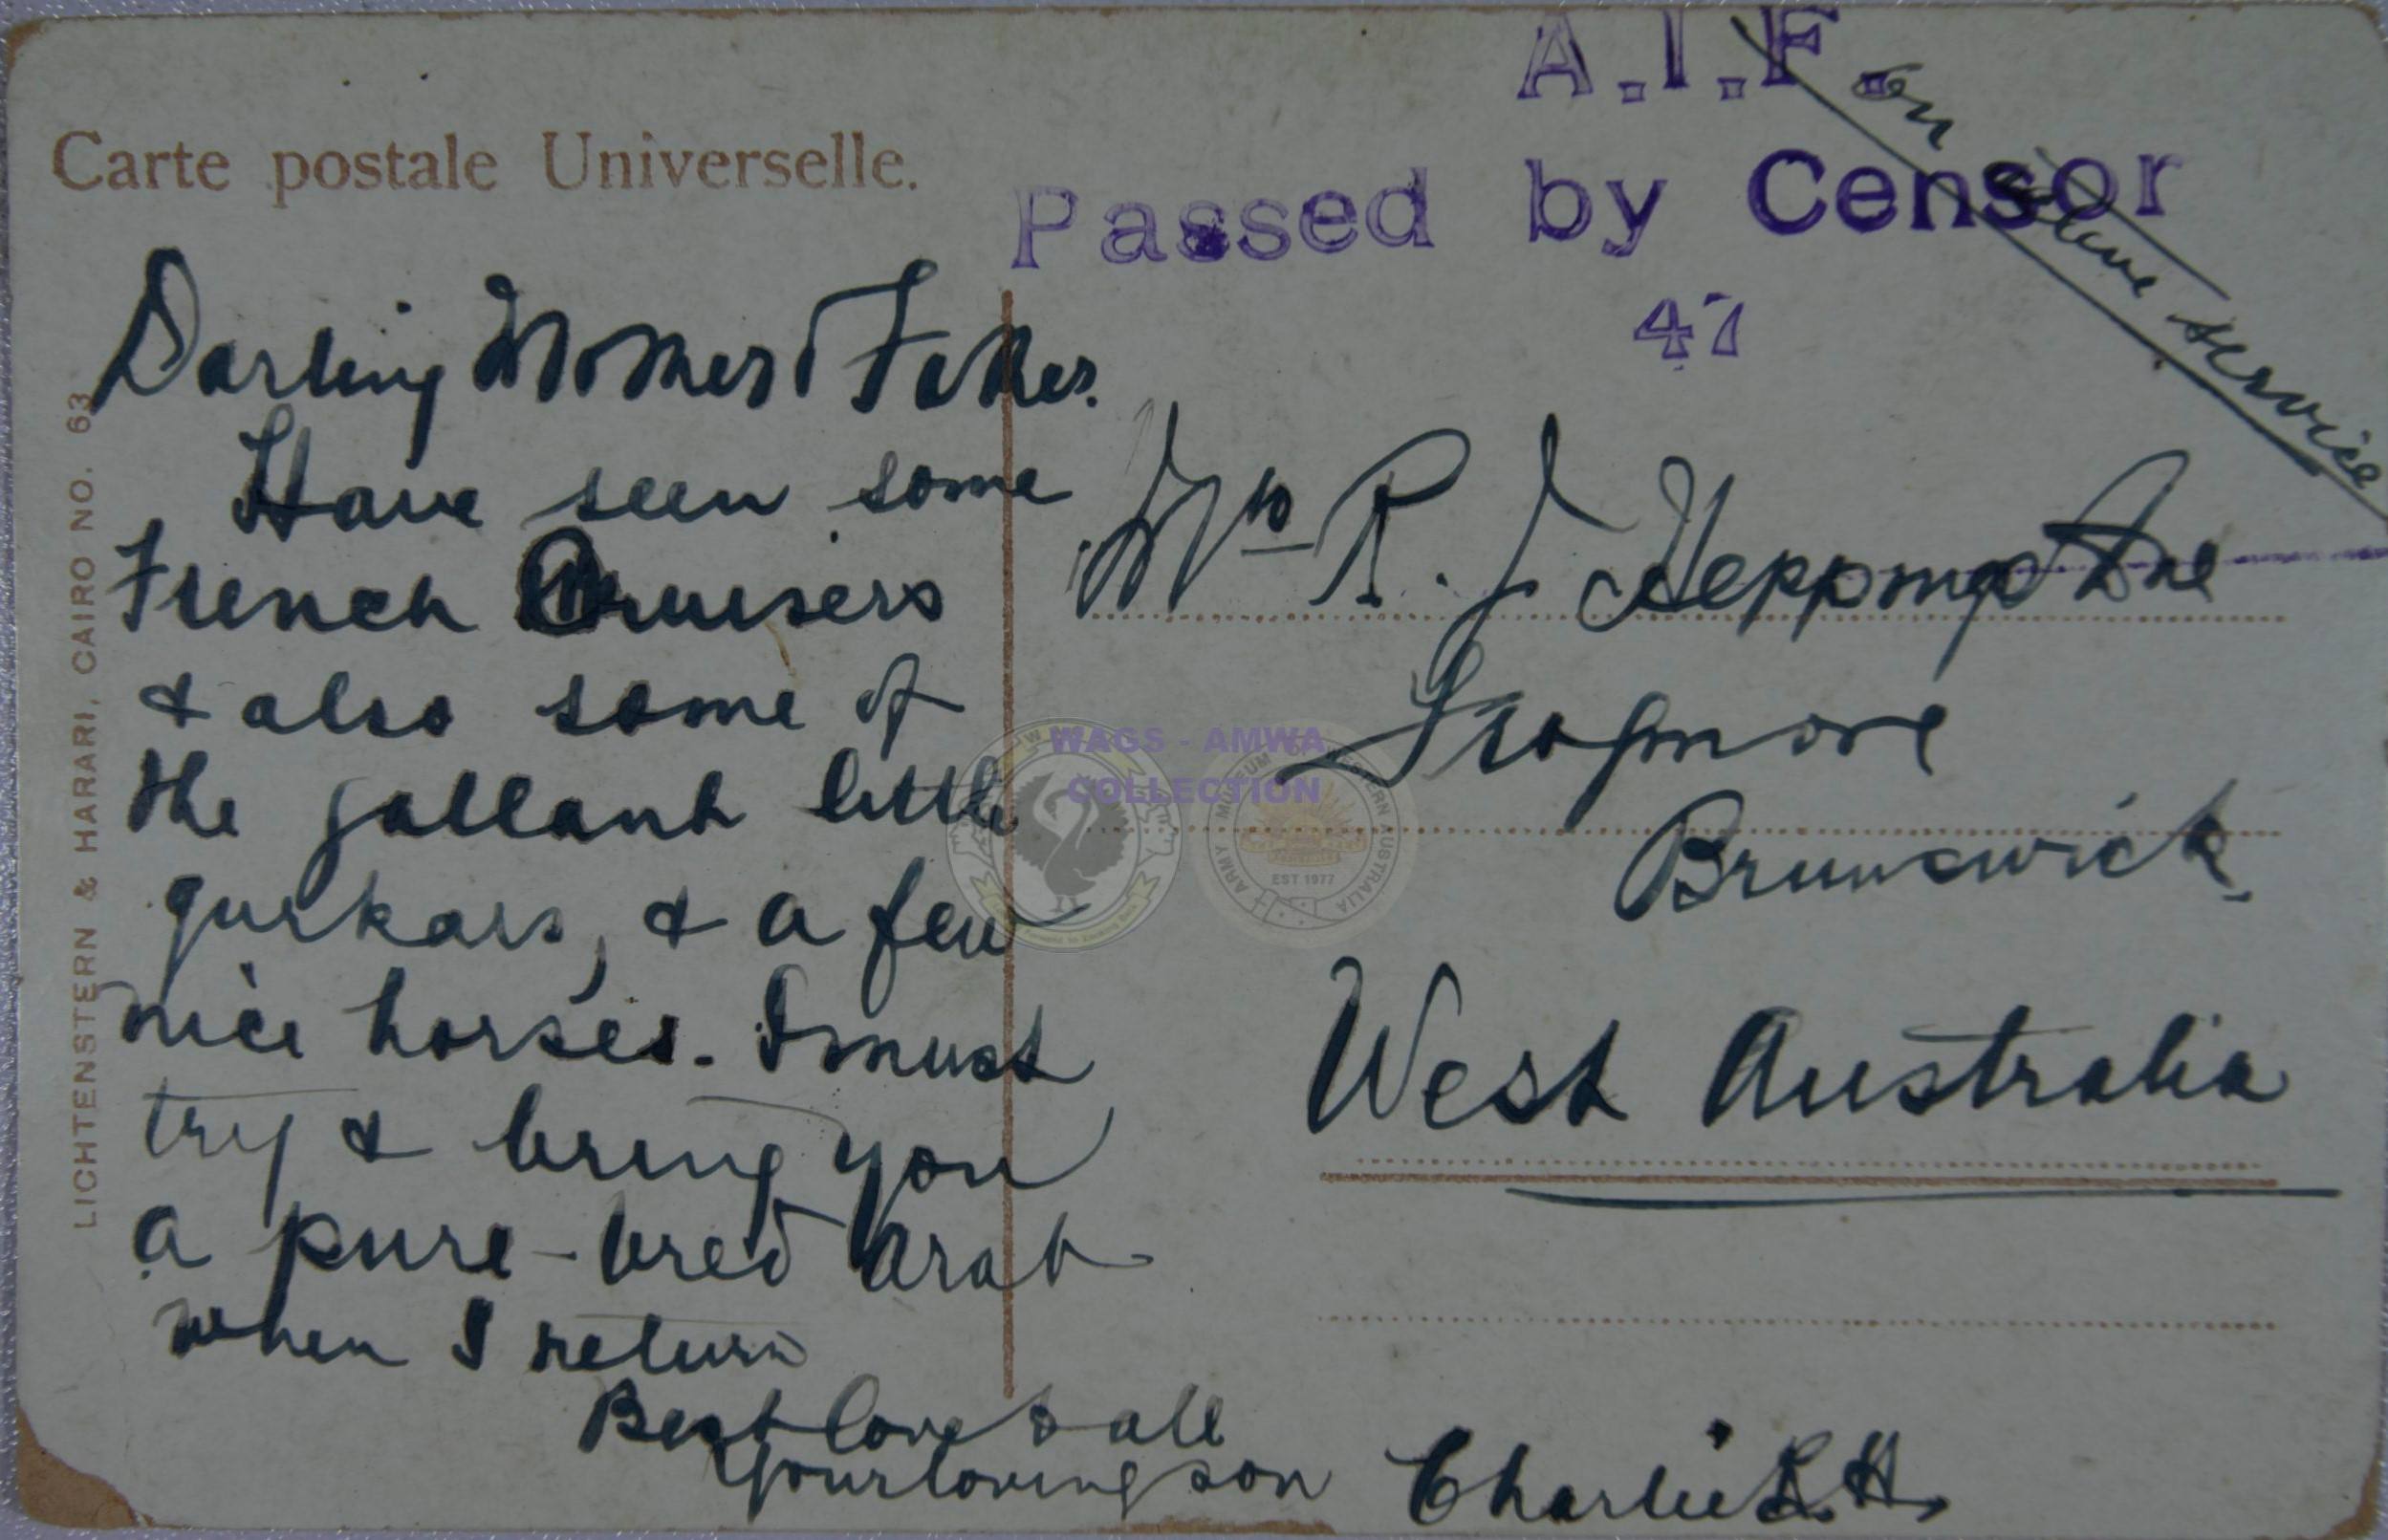 A.I.F.
on active service
Carte postale Universelle.
Passed by Censor
47
Darling Mother & Father.
Have seen some
French Cruisers
& also some of
the gallant little
gurkars, & a few
nice horses. I must
try & bring you
a pure-bred Arab
when I return
Best love to all
Your loving son Charlie L. H.
Mrs R. J. Heppingstone
Frogmore
Brunswick
West Australia
LICHTENSTERN & HARARI, CAIRO NO. 63
WAGS - AMWA
COLLECTION
ARMY MUSEUM OF WESTERN AUSTRALIA
EST 1977